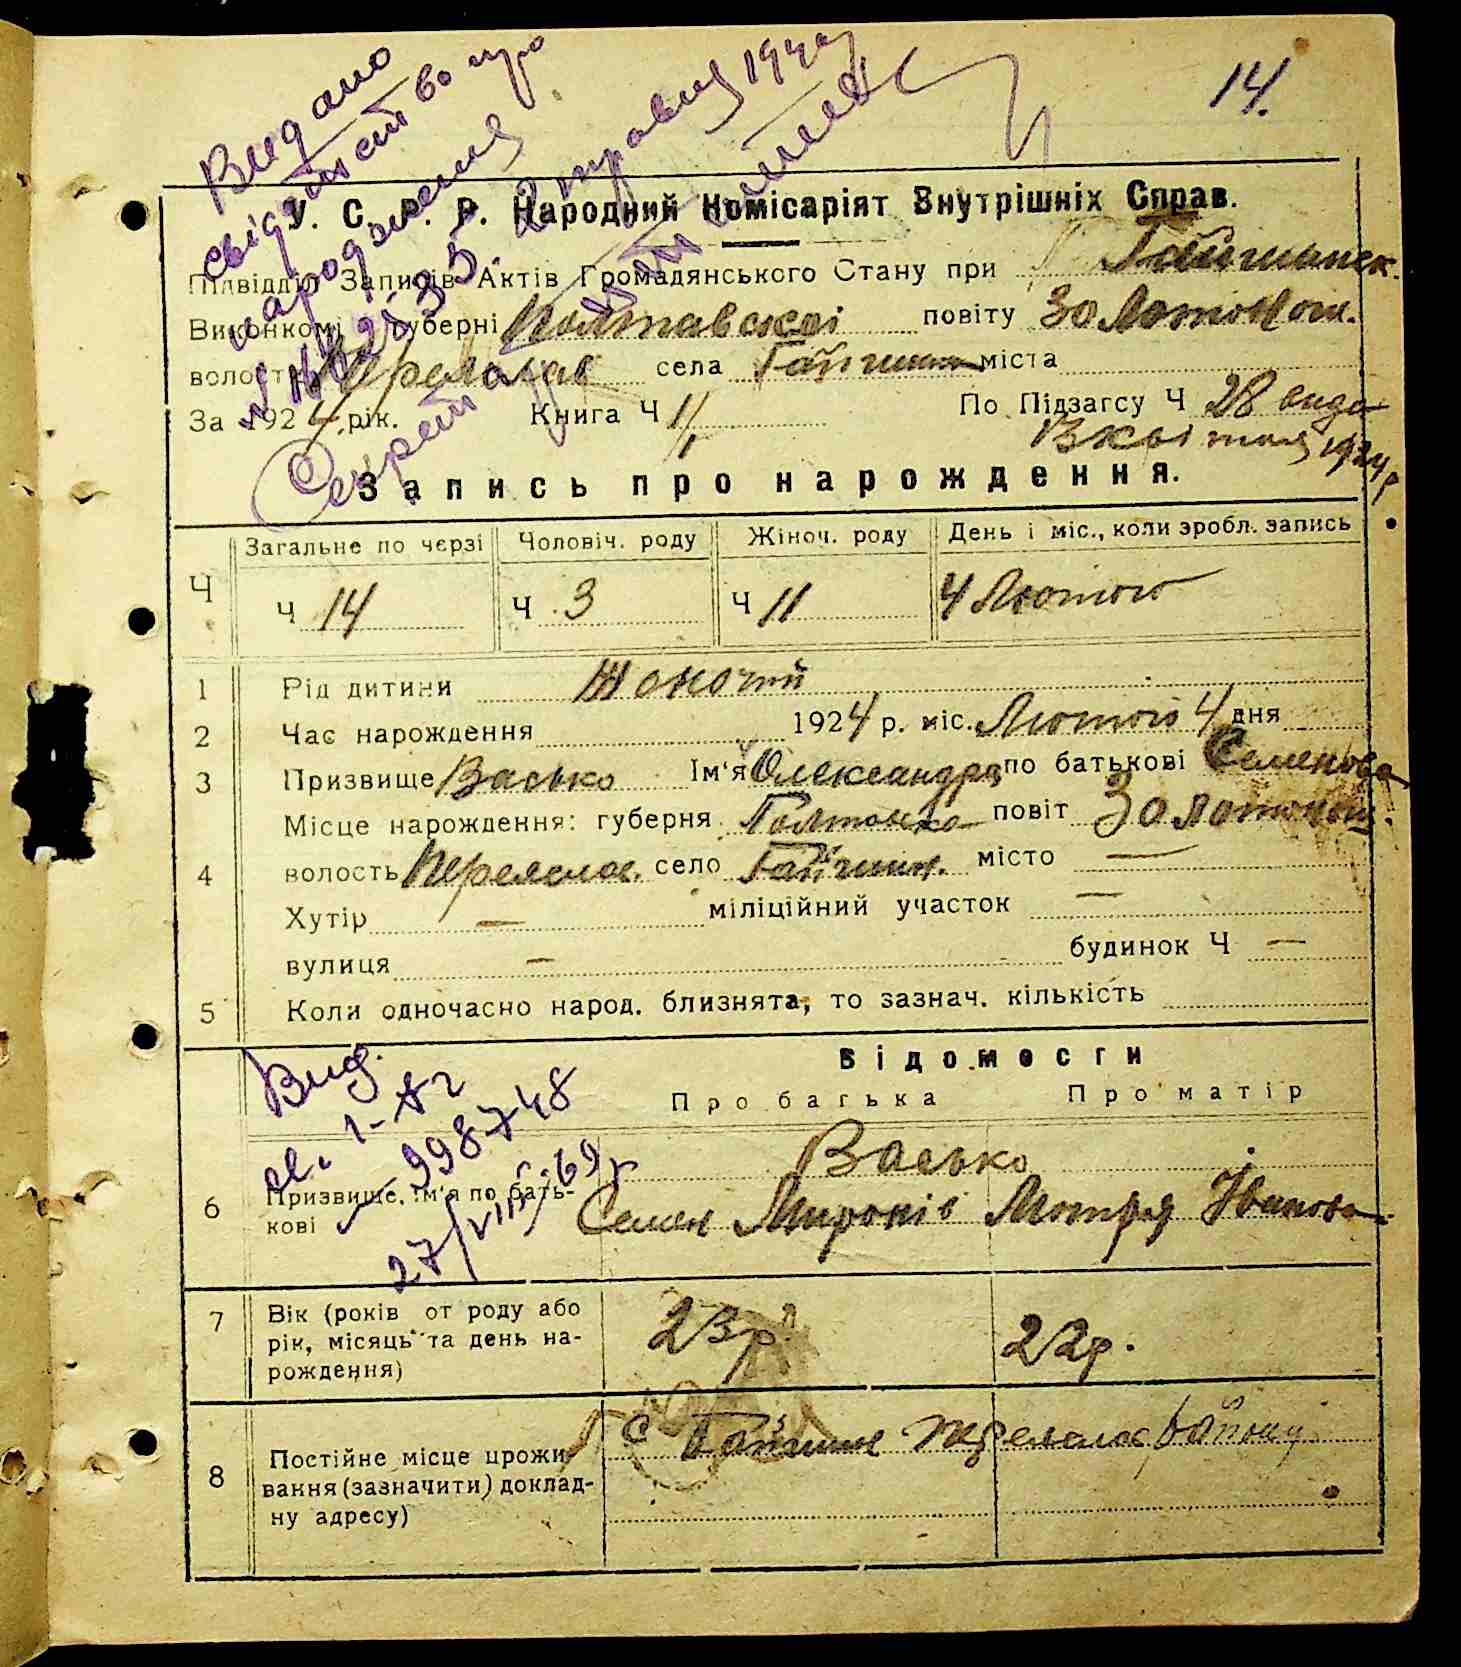 14.
Видано
свідоцтво про
народження
2 травня
У. С. Р. Р. Народний Комісаріят Внутрішніх Справ.
Підвідділ Записів Актів Громадянського Стану при Гайшинськ.
Виконкомі губерні Полтавскоі повіту Золотонош.
волости Переяслав села Гайшин міста
За 1924 рік. Книга Ч 11 По Підзагсу Ч 28
1924 р
Запись про народження.
Загальне по черзі Чоловіч. роду Жіноч. роду День і міс., коли зробл. запись
Ч Ч 14 Ч 3 Ч 11 4 Лютого
1 Рід дитини Жоночий
2 Час народження 1924 р. міс. Лютого 4 дня
3 Призвище Васько Ім'я Олександра по батькові Семенова
Місце народження: губерня Полтавска повіт Золотонош.
4 волость Переяслав. село Гайшин. місто —
Хутір — міліційний участок —
вулиця — будинок Ч —
5 Коли одночасно народ. близнята, то зазнач. кількість
Відомости
Про батька Про матір
Вид.
998748
27/VIII-69р
Васько
6 Призвище, ім'я по бать-
кові Семен Миронів Мотря Іванова
7 Вік (років от роду або
рік, місяць та день на-
рождення) 23р. 22р.
8 Постійне місце прожи-
вання (зазначити) доклад-
ну адресу) с Гайшин Переяслав району